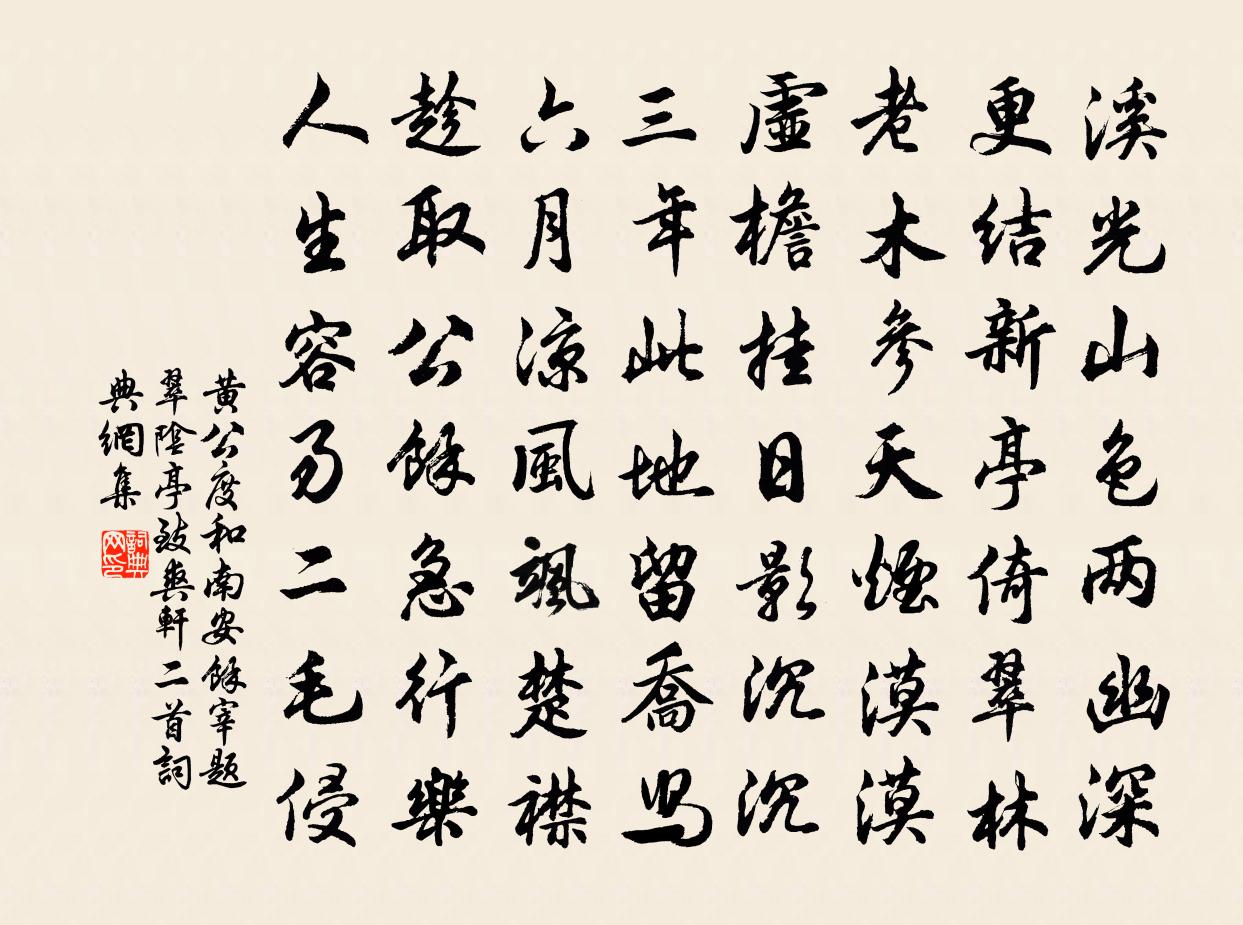 溪光山色两幽深
更结新亭倚翠林
老木参天煙漠漠
虚檐挂日影沉沉
三年此地留喬舄
六月凉風颯楚襟
趁取公餘急行樂
人生容易二毛侵
黄公度和南安餘宰題
翠陰亭致爽軒二首詞
典網集
詞典网印